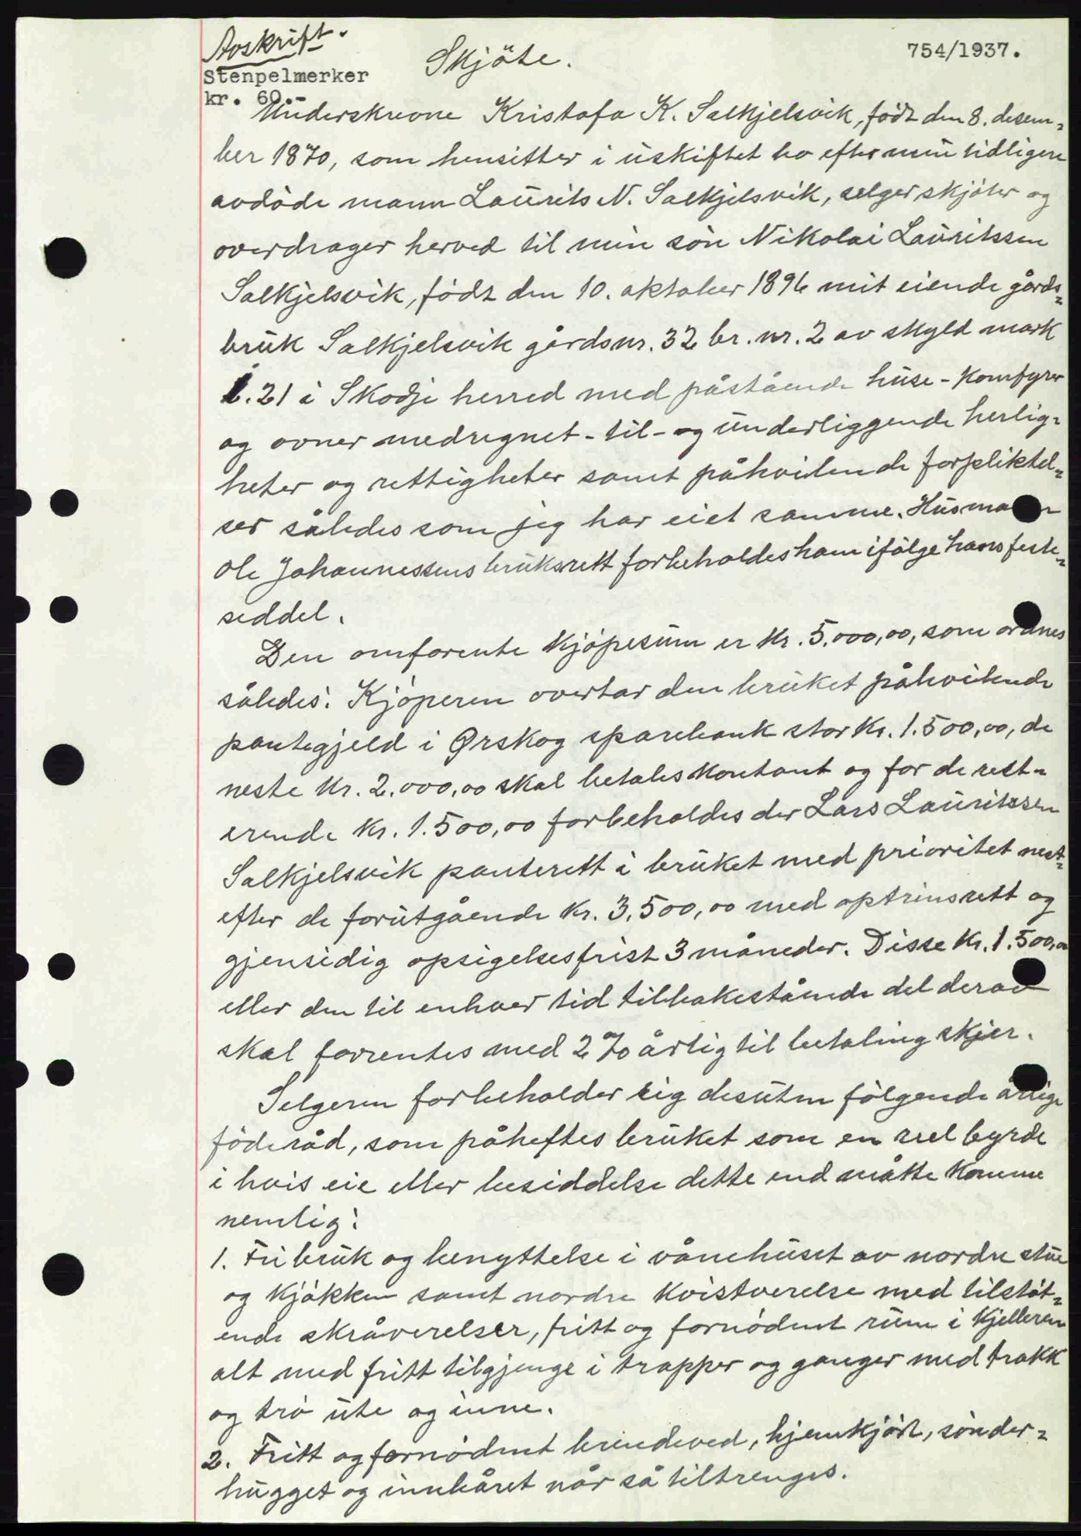 Avskrift.
Skjöte.
754/1937.
Stenpelmerker
kr. 60
Underskrevne Kristofa K. Salkjelsvik, født den 8. desem-
ber 1870, som hensitter i uskiftet bo efter min tidligere
avdöde mann Laurits N. Salkjelsvik, selger skjöter og
overdrager herved til min sön Nikolai Lauritssen
Salkjelsvik, födt den 10. oktober 1896 mit eiende gårds-
bruk Salkjelsvik gårdsnr. 32 br. nr. 2 av skyld mark
1.21 i Skodje herred med påstående huse - komfyrer
og ovner medregnet - til - og underliggende herlig-
heter og rettigheter samt påhvilende forpliktel-
ser således som jeg har eiet samme. Husmann
Ole Johannessens bruksrett forbeholdes ham ifölge hans feste-
seddel.
Den omforente kjöpesum er kr. 5.000,00, som ordnes
således: Kjöperen overtar den bruket påhvilende
pantegjeld i Ørskog sparebank stor kr. 1.500,00, de
neste kr. 2.000,00 skal betales kontant og for de rest-
erende kr. 1.500,00 forbeholdes der Lars Lauritssen
Salkjelsvik panterett i bruket med prioritet nest-
efter de forutgående kr. 3.500,00 med optrinsrett og
gjensidig opsigelsesfrist 3 måneder. Disse kr. 1.500,00
eller den til enhver tid tilbakestående del derav
skal forrentes med 2 % årlig til betaling skjer.
Selgeren forbeholder sig desuten fölgende årlige
föderåd, som påheftes bruket som en reel byrde
i hvis eie eller besiddelse dette end måtte komme
nemlig:
1. Fri bruk og benyttelse i vånehuset av nordre stue
og kjökken samt nordre kvistverelse med tilstöt-
ende skråverelser, fritt og fornödent rum i kjelleren
alt med fritt tilgjenge i trapper og ganger med trakk
og trö ute og inne.
2. Fritt og fornödent brendeved, hjemkjört, sönder-
hugget og innbåret når så tiltrenges.